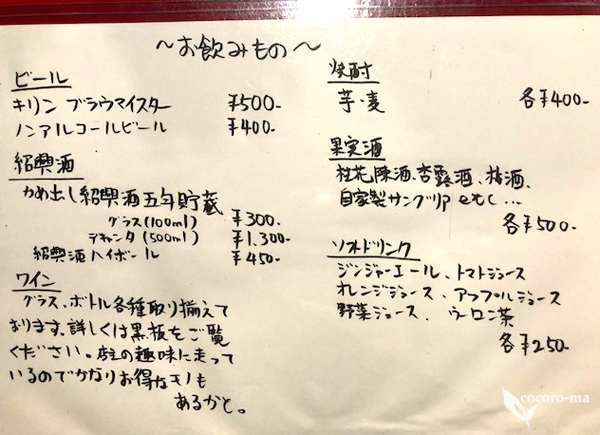 ～お飲みもの～
ビール
キリン ブラウマイスター ¥500-
ノンアルコールビール ¥400-
紹興酒
かめ出し紹興酒五年貯蔵
グラス(100ml) ¥300-
デキャンタ(500ml) ¥1.300-
紹興酒ハイボール ¥450-
ワイン
グラス、ボトル各種取り揃えて
おります。詳しくは黒板をご覧
ください。店主の趣味に走って
いるのでかなりお得なモノも
あるかと。
焼酎
芋・麦 各¥400-
果実酒
桂花陳酒、杏露酒、梅酒、
自家製サングリア etc...
各¥500-
ソフトドリンク
ジンジャーエール、トマトジュース
オレンジジュース、アップルジュース
野菜ジュース、ウーロン茶
各¥250-
cocoro-ma